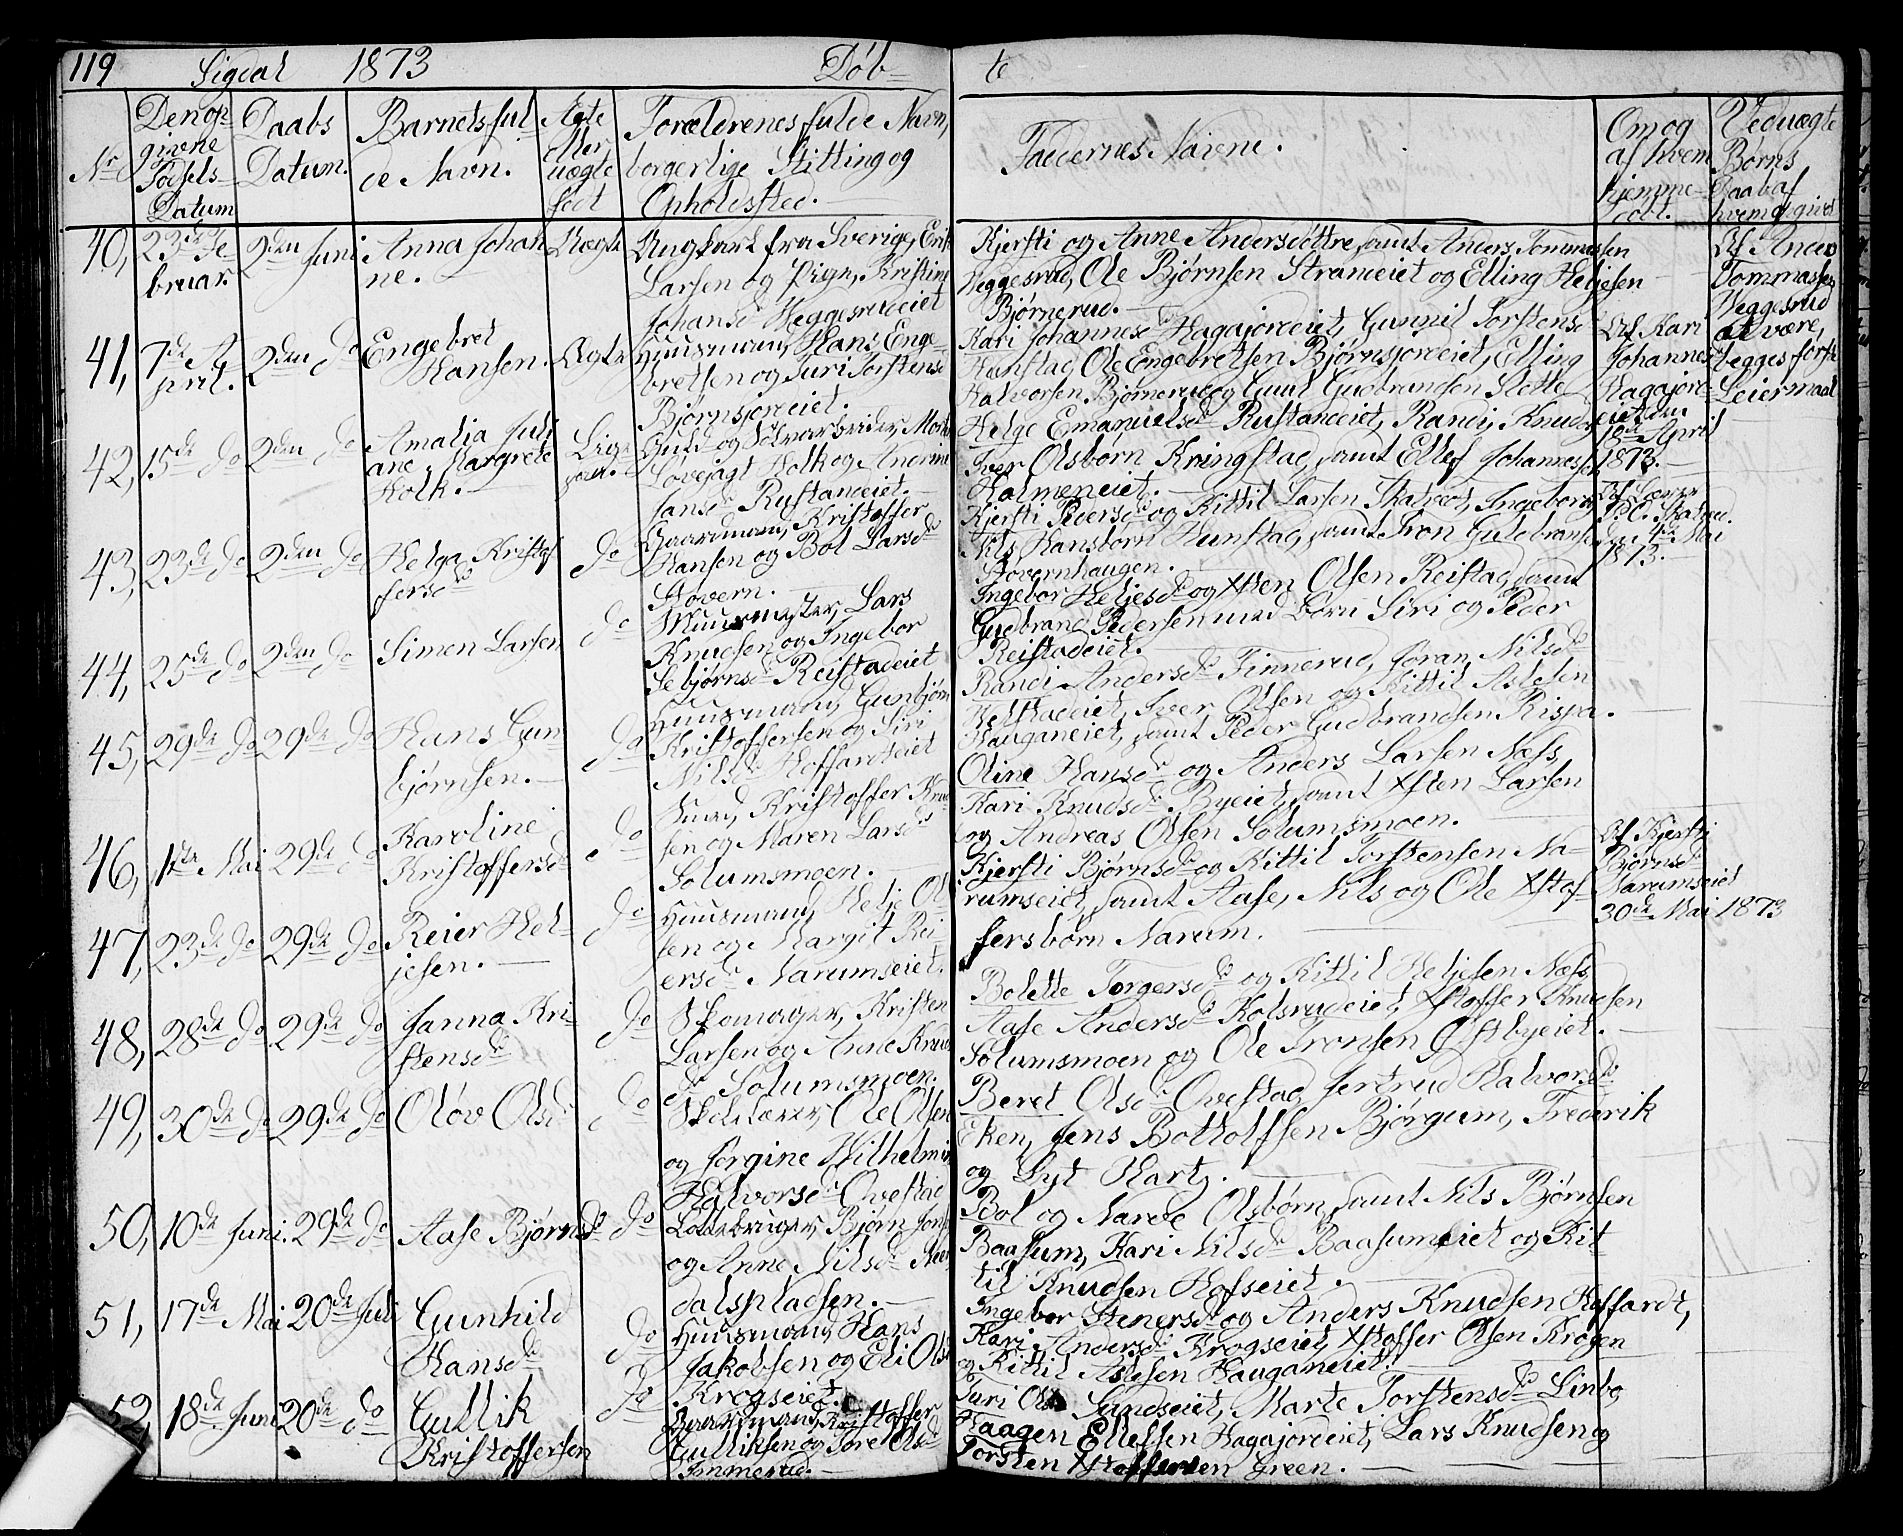 119 Sigdal 1873 Døb-te
Nr
Den op-
givne
Fødsels-
Datum
Daabs
Datum.
Barnets ful-
de Navn.
Ægte
eller
uægte
født
Forældrenes fulde Navn,
borgerlige Stilling og
Opholdsted.
Faddernes Navne.
Om og
af hvem
hjemme-
døbt.
Ved uægte
Børns
Daab af
hvem opgivet
40, 23de Fe-
bruar.
2den Juni
Anna Johan
ne.
Uægte
Ungkarl fra Sverige, Erik
Larsen og Pige, Kristine
Johansd. Veggesrudeiet
Kjersti og Anne Andersdøttre, samt Anders Tommassen
Veggesrud, Ole Bjørnsen Strandeiet og Elling Heljesen
Bjørnerud.
Af Anders
Tommassen
Veggesrud
at være
begges første
Leiermaal
41, 7de A-
pril.
2den do
Engebret
Hansen.
Ægte
Huusmand, Hans Enge-
bretsen og Turi Torstensd
Bjørnsjordeiet.
Kari Johannesd. Hagajordeiet, Gunnil Torstensd
Hunstad, Ole Engebretsen Bjørnsjordeiet, Elling
Halvorsen Bjørnerud og Guul Gudbrandsen Slette
Af Kari
Johannesd
Hagajord-
eiet den
10de April
1873.
42, 15de do 2den do
Amalia Juli
ane Margrete
Holk.
Guld og Sølvarbeider,
Løvejagt Holk og Andrine
Jansd. Rustandeiet.
Helge Emanuelsd. Rustandeiet, Randi, Knud og
Iver Olsbørn Kringstad, samt Ellef Johannessen
Holmeneiet.
43, 23de do 2den do
Helga Kristof
fersd
do
Gaardmand, Kristoffer
Hansen og Bol Larsd
Stovern.
Kjersti Pedersd og Kittil Larsen Skalred, Ingeborg,
Nils Hansbørn Hunstad, samt Tron Gulbransen
Stovernhaugen.
1ste Mai
1873.
44, 25de do 2den do
Simen Larsen
do
Muurmester, Lars
Knudsen og Ingebor
Sebjørnsd. Reistadeiet
Ingebor Heljesd og Xsten Olsen Reistad, samt
Gudbrand Pedersen med Børn Siri og Peder
Reistadeiet.
45, 29de do 29de do
Hans Gun-
bjørnsen.
do
Huusmand, Gunbjørn
Kristoffersen og Siri
Nilsd Hoffarteiet
Randi Andersd Finnerud, Jøran Nilsd
Velstadeiet, Iver Olsen og Kittil Aslesen
Hauganeiet, samt Peder Gudbrandsen Rispa.
46, 1ste Mai 29de do
Karoline
Kristoffersd
do
Kristoffer Knud
sen og Maren Larsd
Solumsmoen.
Oline Hansd. og Anders Larsen Næss
Kari Knudsd. Byeiet, samt Xsten Larsen
og Andreas Olsen Solumsmoen.
47, 23de do 29de do
Reier Hel-
jesen.
do
Huusmand, Helje Ol
sen og Margit Rei-
ersd. Narumseiet.
Kjersti Bjørnsd og Kittil Torstensen Na-
rumseiet, samt Aase, Nils og Ole Xstof-
fersbørn Narum.
Af Kjersti
Bjørnsd
Narumseiet
30de Mai 1873
48, 28de do 29de do
Janna Kri-
stensd
do
Skomager, Kristen
Larsen og Anne Knud
sd Solumsmoen.
Bolette Torgersd og Kittil Heljesen Næss,
Aase Andersd Kolsrudeiet, Xstoffer Knudsen
Solumsmoen og Ole Tronsen Østbyeiet.
49, 30de do 29de do
Oløv Olsd
do
Skolelærer, Ole Olsen
og Jørgine Wilhelmine
Halvorsd. Ovestad
Beret Olsd. Ovestad, Jertrud Halvorsd
Eken, Jens Botholfsen Bjørgum, Frederik
og Syt Hartz.
50, 10de Juni. 29de do
Aase Bjørnsd
do
Lottebruger, Bjørn
og Anne Nilsd.
dalspladsen.
Bol og Narve Olsbørn, samt Nils Bjørnsen
Baasum, Kari Nilsd. Baasumseiet og Kit-
til Knudsen Hofseiet.
51, 17de Mai 20de Juli
Gunhild
Hansd
do
Huusmand, Hans
Jakobsen og Eli Olsd
Krogseiet.
Ingebor Stenersd og Anders Knudsen Hoffardt,
Kari Andersd. Krogseiet, Xstoffer Olsen Krogen
og Kittil Aslesen Hauganeiet.
52, 18de Juni 20de do
Gullik
Kristoffersen
do
Gaardmand, Kristoffer
Gulliksen og Tore Olsd
Immerud.
Turi Olsd Sundseiet, Marte Torstensd Linbo
Haagen Ellefsen Hagajordeiet, Lars Knudsen og
Torsten Xstoffersen Green.